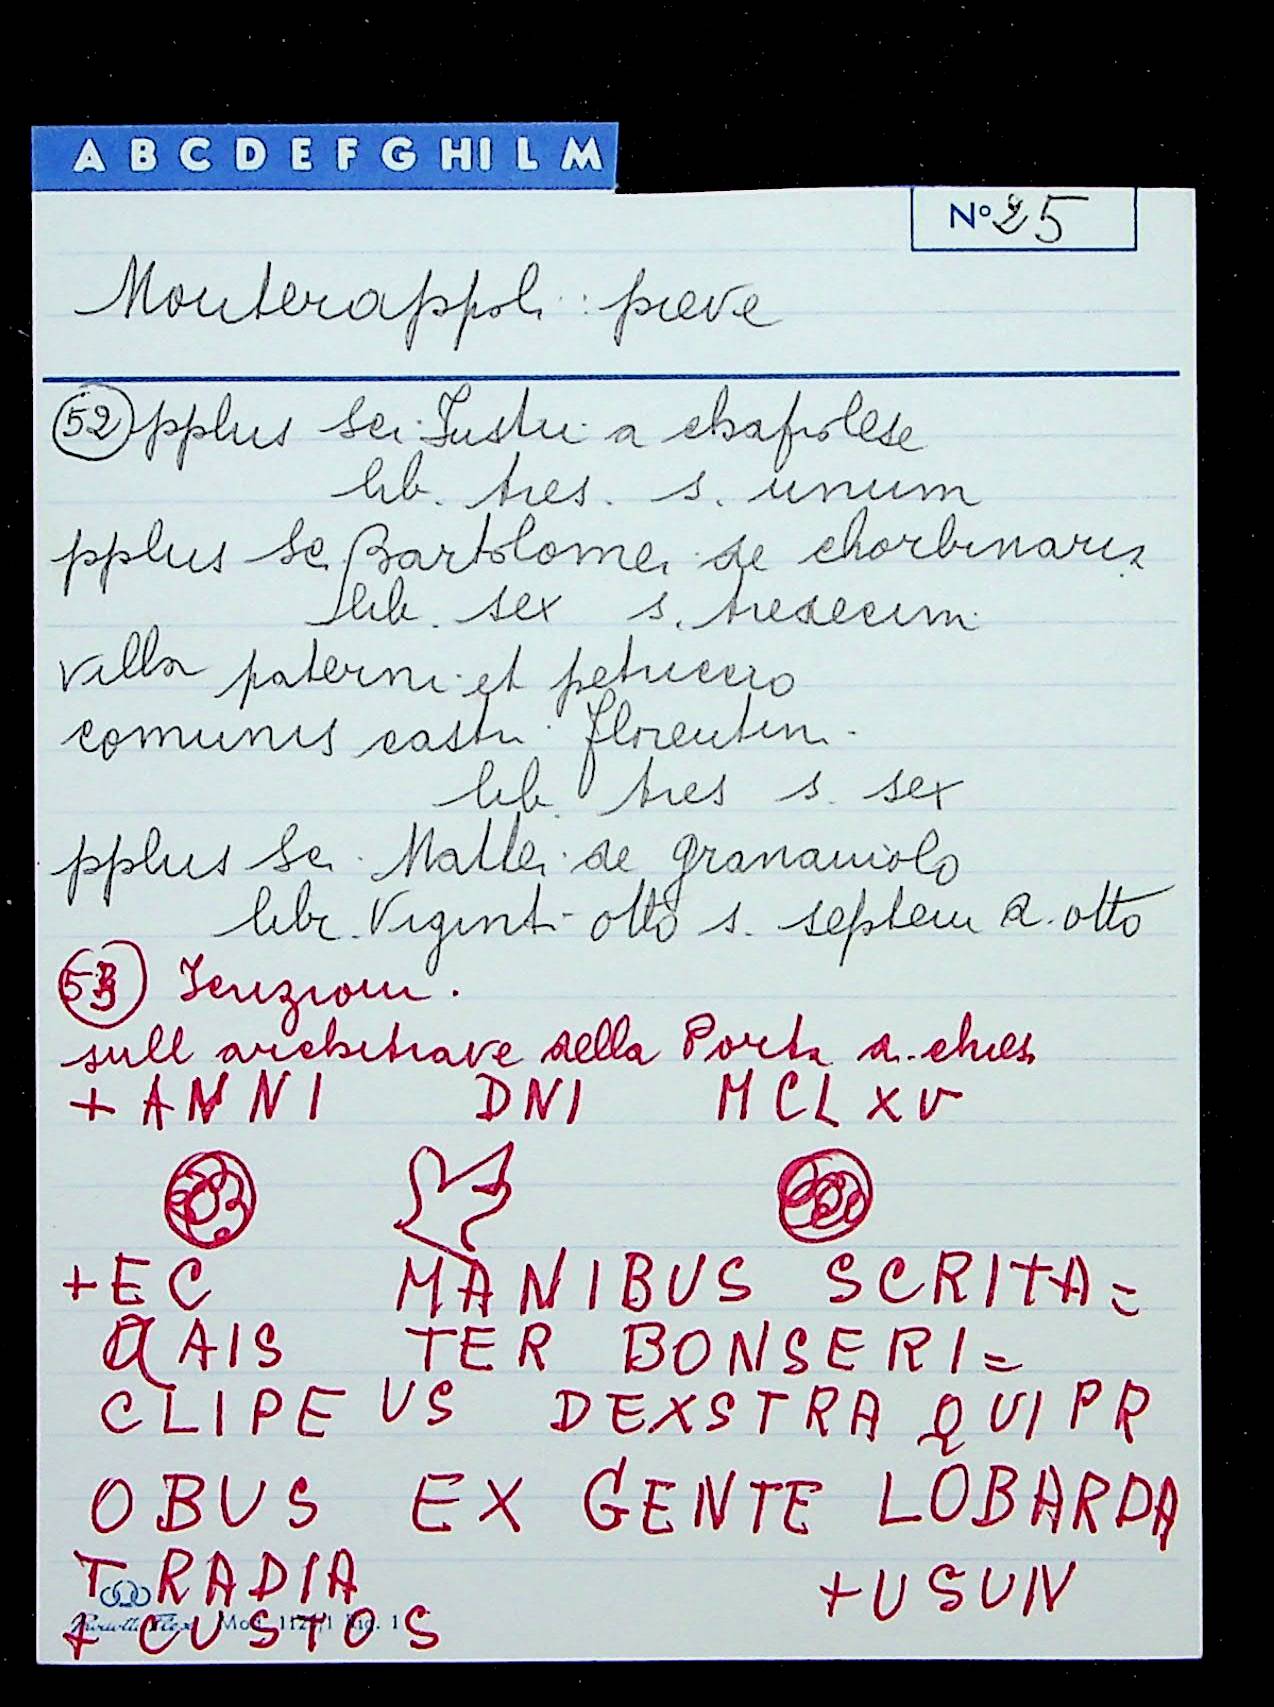 A B C D E F G HI L M
N° 25
Monterappoli: pieve
52 pplus Sci Justi a chafolese
lib. tres. s. unum
pplus Sci Bartolomei de chorbinaria
lib. sex s. tredecim
villa paterni et petriccio
comunis castri florentini
lib. tres s. sex
pplus Sci Mattei de granaiuolo
libr. Viginti otto s. septem d. otto
53 Iscrizioni.
sull architrave della Porta d. chiesa
+ANNI DNI MCLXV
+EC MANIBUS SCRITA=
QAIS TER BONSERI=
CLIPEUS DEXSTRA QUI PR
OBUS EX GENTE LOBARDA
TRADIA +USUN
+CUSTOS
Mod. 112